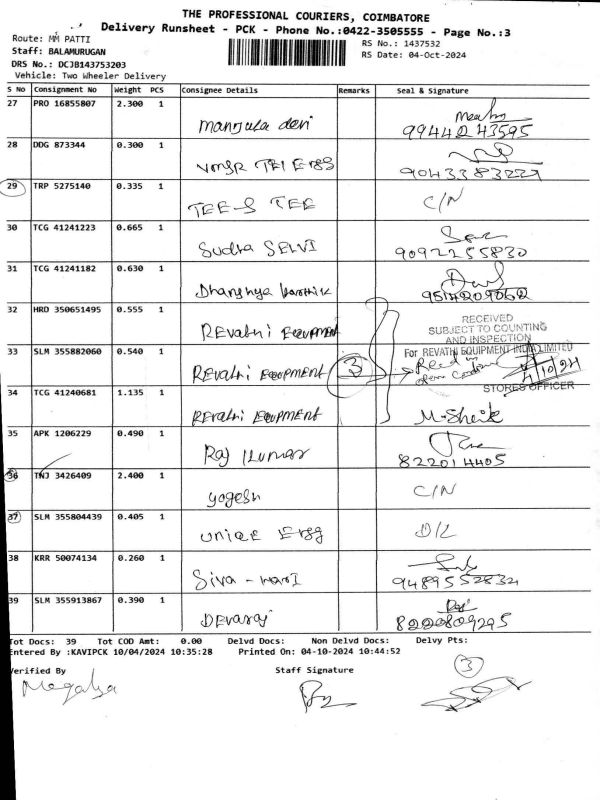 THE PROFESSIONAL COURIERS, COIMBATORE
Delivery Runsheet - PCK - Phone No.:0422-3505555 - Page No.:3
Route: MM PATTI
RS No.: 1437532
Staff: BALAMURUGAN
RS Date: 04-Oct-2024
DRS No.: DCJB143753203
Vehicle: Two Wheeler Delivery
S No Consignment No Weight PCS Consignee Details Remarks Seal & Signature
27 PRO 16855807 2.300 1
Manjula devi 9944243595
28 DDG 873344 0.300 1
29 TRP 5275140 0.335 1
TEE-S TEE C/N
30 TCG 41241223 0.665 1
Sudha SELVI 9092255830
31 TCG 41241182 0.630 1
32 HRD 350651495 0.555 1
REvathi EQUIPMENT
RECEIVED
SUBJECT TO COUNTING
AND INSPECTION
For REVATHI EQUIPMENT INDIA LIMITED
33 SLM 355882060 0.540 1
REvathi EQUIPMENT 3
4/10/24
STORES OFFICER
34 TCG 41240681 1.135 1
REvathi EQUIPMENT M.Sheik
35 APK 1206229 0.490 1
Raj Kumar 8220144405
36 TNJ 3426409 2.400 1
yogesh C/N
37 SLM 355804439 0.405 1
uniqE Engg D/L
38 KRR 50074134 0.260 1
Siva - hari 9489552834
39 SLM 355913867 0.390 1
DEvaraj 8220809295
Tot Docs: 39 Tot COD Amt: 0.00 Delvd Docs: Non Delvd Docs: Delvy Pts:
Entered By :KAVIPCK 10/04/2024 10:35:28 Printed On: 04-10-2024 10:44:52
3
Verified By Staff Signature